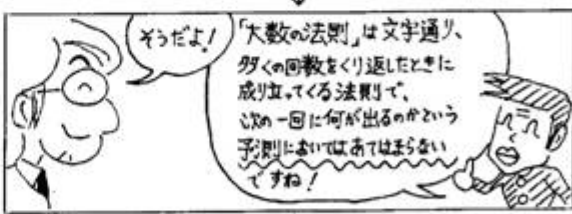 そうだよ!
「大数の法則」は文字通り、
多くの回数をくり返したときに
成り立ってくる法則で、
次の一回に何が出るのかという
予測においてはあてはまらない
ですね!